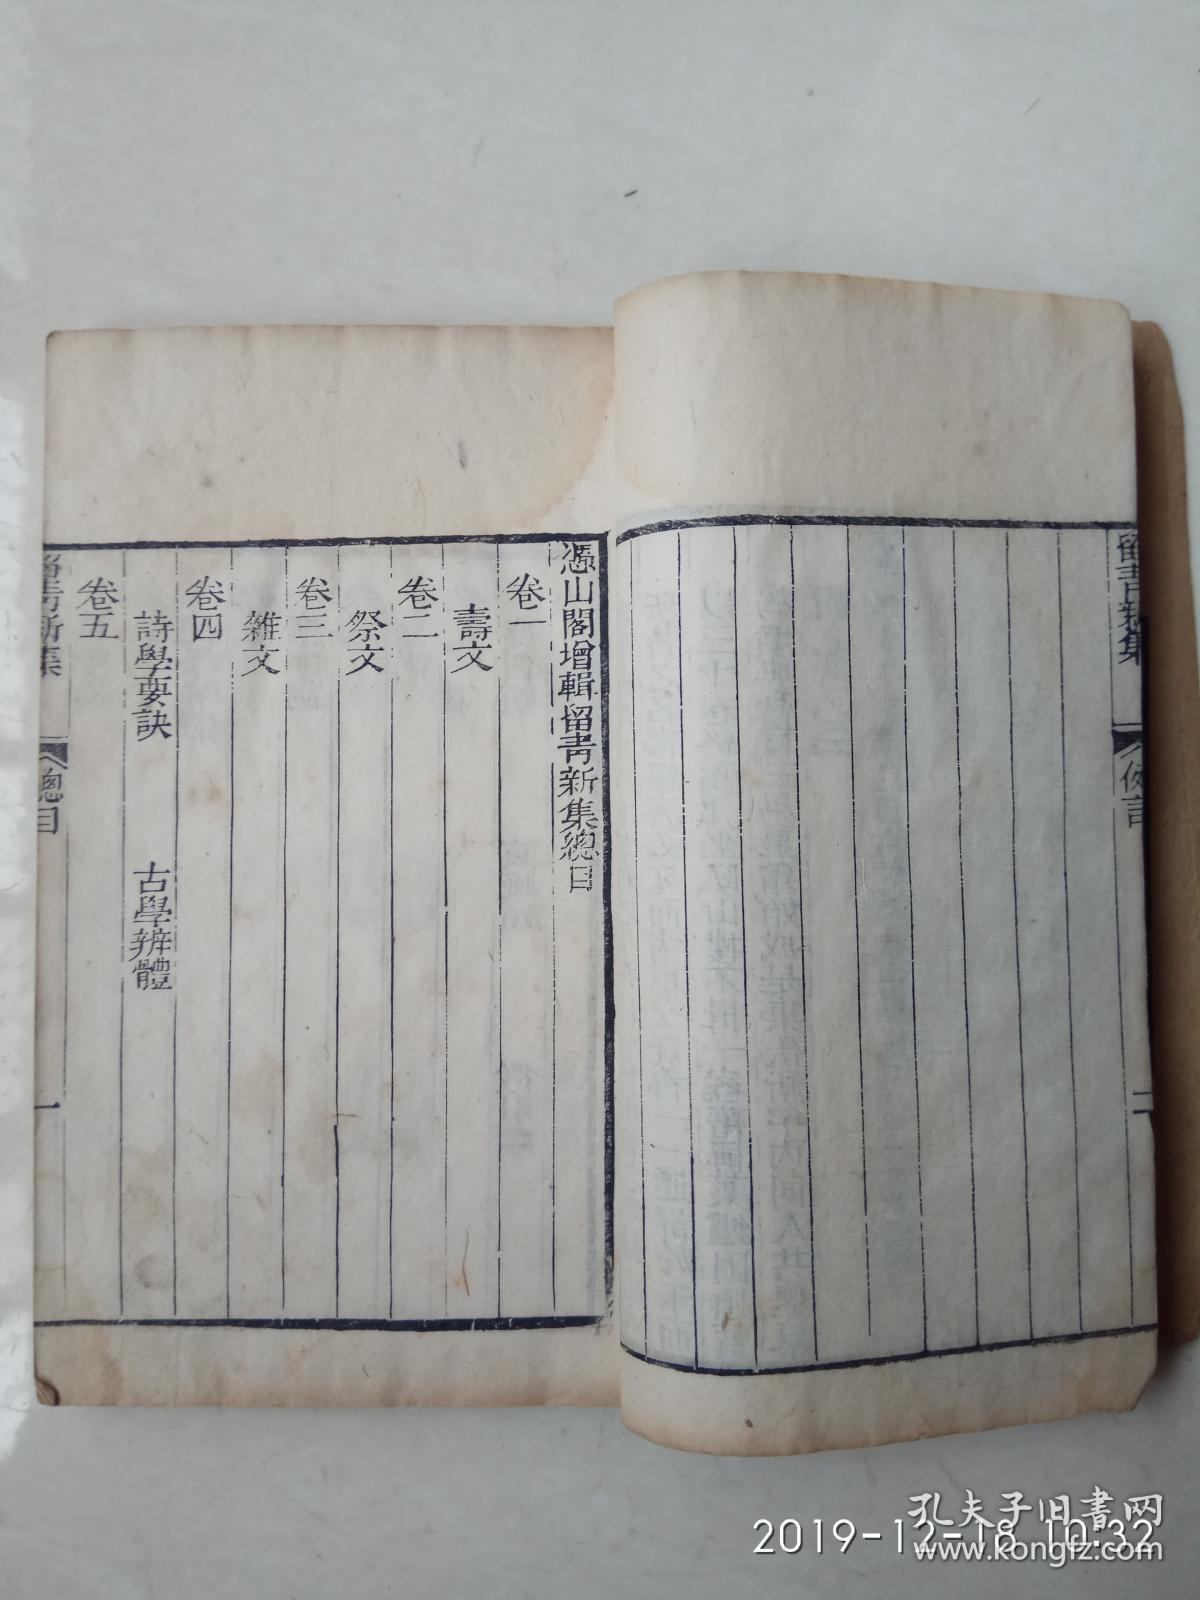 留青新集
二
憑山閣增輯留青新集總目
卷一
壽文
卷二
祭文
卷三
雜文
卷四
詩學要訣 古學辨體
卷五
留青新集
總目
一
2019-12-18 10:32
孔夫子旧书网
www.kongfz.com